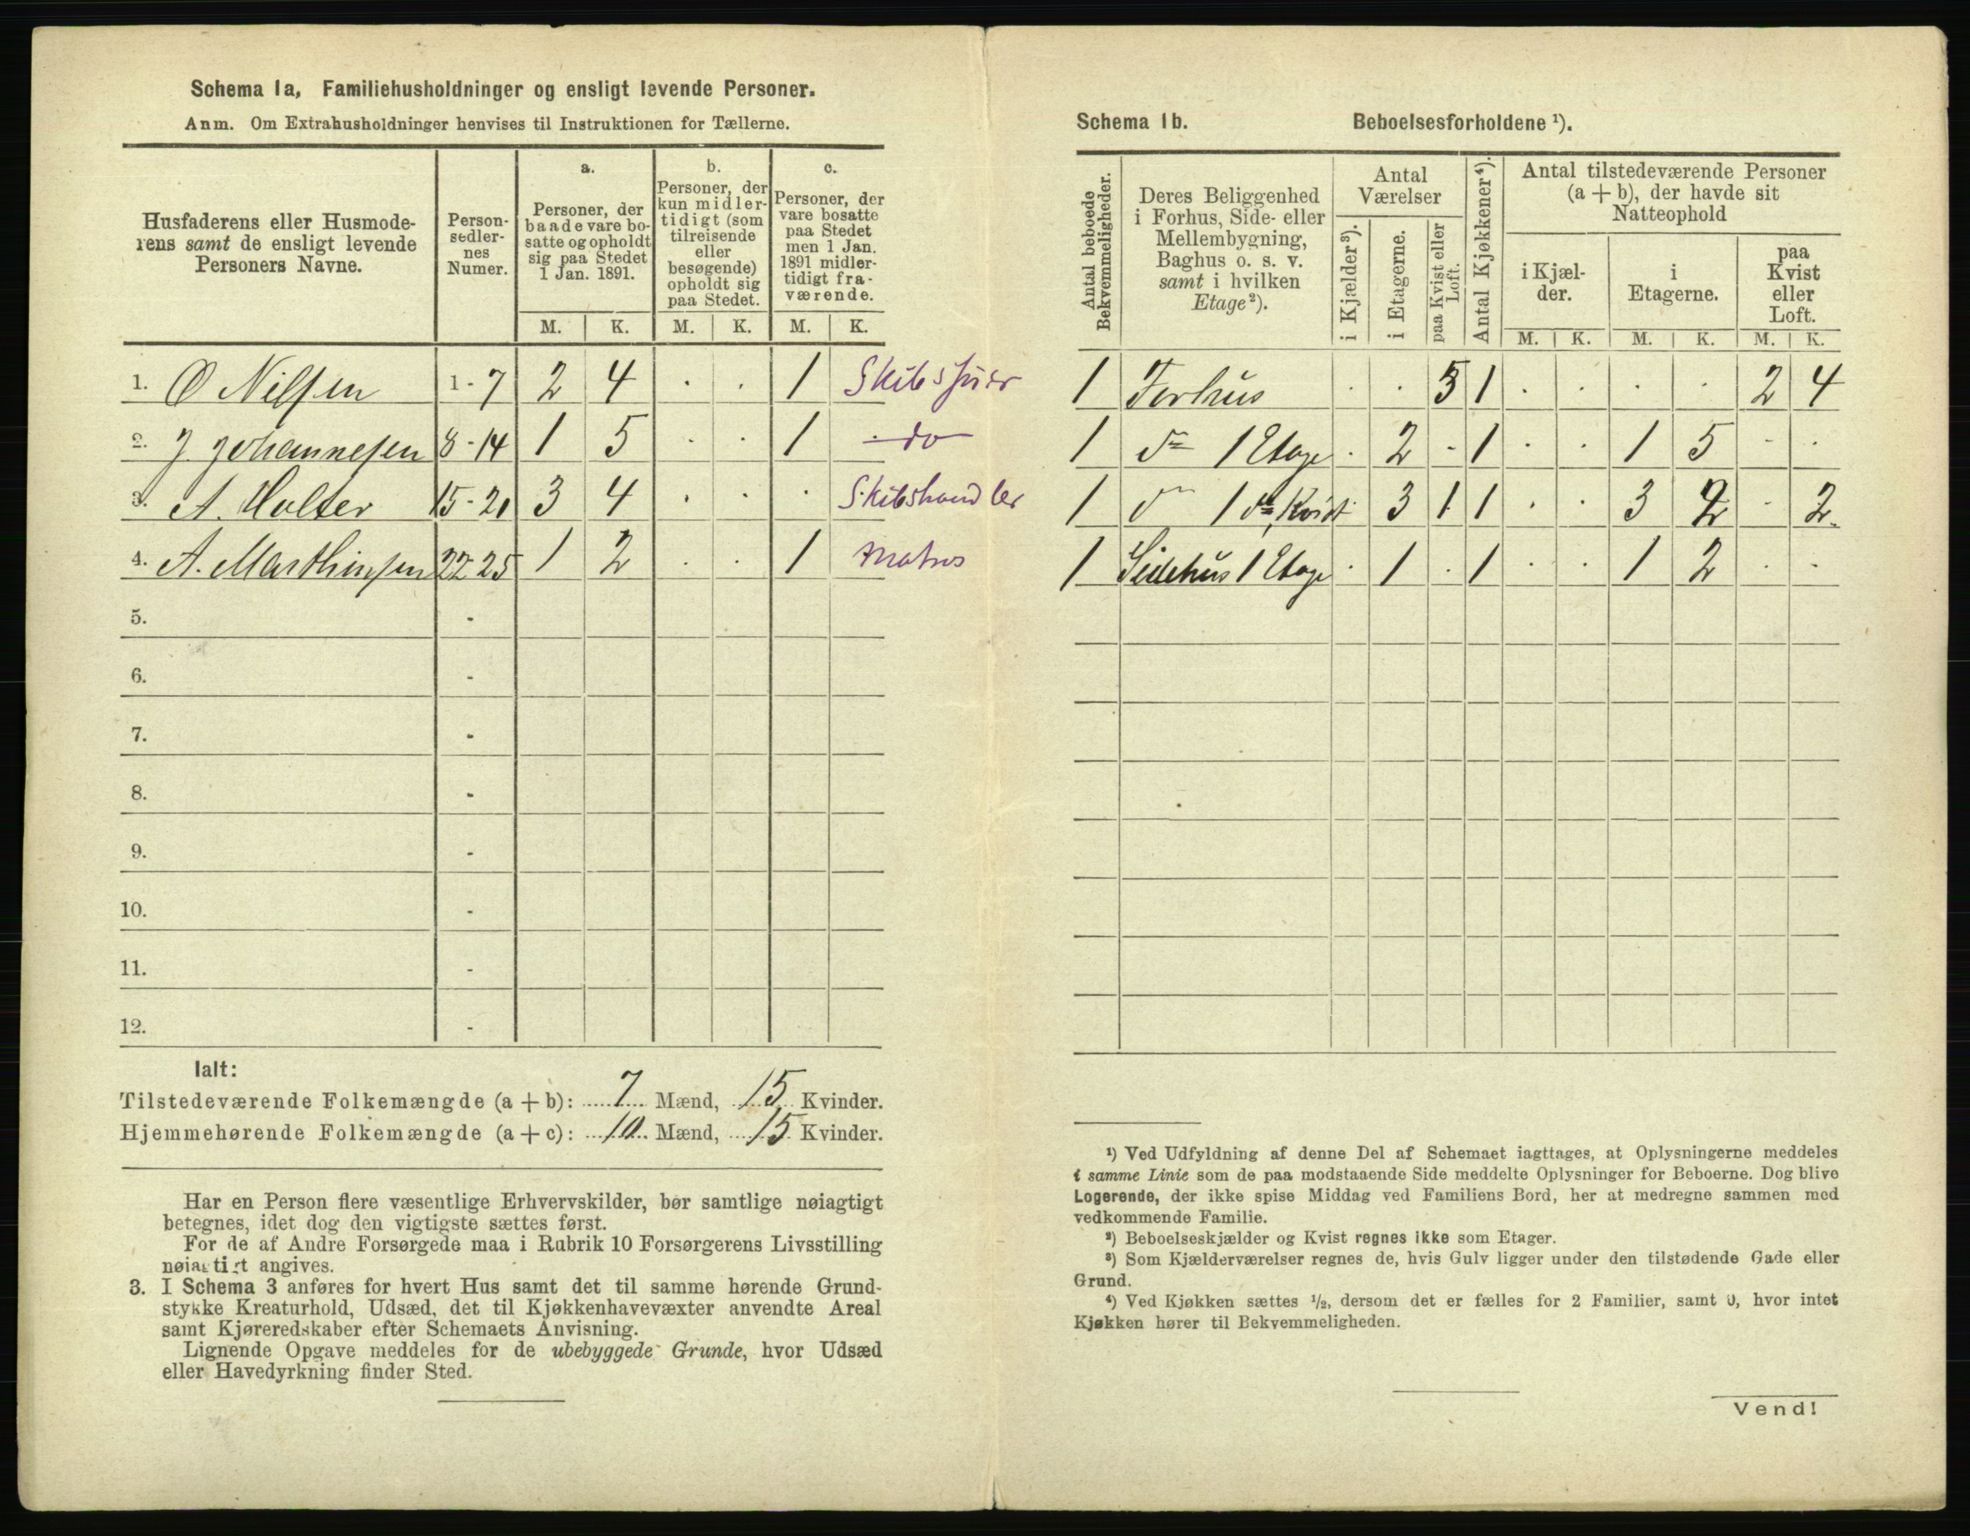 Schema 1a, Familiehusholdninger og ensligt levende Personer.
Anm. Om Extrahusholdninger henvises til Instruktionen for Tællerne.
Husfaderens eller Husmoderens samt de ensligt levende Personers Navne.
Personsedlernes Numer.
a.
Personer, der baade vare bosatte og opholdt sig paa Stedet 1 Jan. 1891.
b.
Personer, der kun midlertidigt (som tilreisende eller besøgende) opholdt sig paa Stedet.
c.
Personer, der vare bosatte paa Stedet men 1 Jan. 1891 midlertidigt fraværende.
M. K. M. K. M. K.
1. O Nilsen 1 - 7 2 4 . . 1 Skibsfører
2. J. Johannesen 8 - 14 1 5 . . 1 do
3. A. Holter 15 - 21 3 4 . . . Skibshandler
4. A. Marthinsen 22 25 1 2 . . 1 Matros
5. -
6. -
7. -
8. -
9. -
10. -
11. -
12. -
Ialt:
Tilstedeværende Folkemængde (a + b): 7 Mænd, 15 Kvinder.
Hjemmehørende Folkemængde (a + c): 10 Mænd, 15 Kvinder.
Har en Person flere væsentlige Erhvervskilder, bør samtlige nøiagtigt
betegnes, idet dog den vigtigste sættes først.
For de af Andre Forsørgede maa i Rubrik 10 Forsørgerens Livsstilling
nøiagtigt angives.
3. I Schema 3 anføres for hvert Hus samt det til samme hørende Grund-
stykke Kreaturhold, Udsæd, det til Kjøkkenhavevæxter anvendte Areal
samt Kjøreredskaber efter Schemaets Anvisning.
Lignende Opgave meddeles for de ubebyggede Grunde, hvor Udsæd
eller Havedyrkning finder Sted.
Schema 1b. Beboelsesforholdene ¹).
Antal beboede Bekvemmeligheder.
Deres Beliggenhed i Forhus, Side- eller Mellembygning, Baghus o. s. v. samt i hvilken Etage²).
Antal Værelser
i Kjælder³).
i Etagerne.
paa Kvist eller Loft.
Antal Kjøkkener⁴).
Antal tilstedeværende Personer (a + b), der havde sit Natteophold
i Kjælder.
i Etagerne.
paa Kvist eller Loft.
M. K. M. K. M. K.
1 Forhus . . 3 1 . . . . 2 4
1 do 1 Etage . 2 . 1 . . 1 5 . .
1 do 1 do, Kvist . 3 1 1 . . 3 2 . 2
1 Sidehus 1 Etage . 1 . 1 . . 1 2 . .
¹) Ved Udfyldning af denne Del af Schemaet iagttages, at Oplysningerne meddeles
i samme Linie som de paa modstaaende Side meddelte Oplysninger for Beboerne. Dog blive
Logerende, der ikke spise Middag ved Familiens Bord, her at medregne sammen med
vedkommende Familie.
²) Beboelseskjælder og Kvist regnes ikke som Etager.
³) Som Kjælderværelser regnes de, hvis Gulv ligger under den tilstødende Gade eller
Grund.
⁴) Ved Kjøkken sættes ½, dersom det er fælles for 2 Familier, samt 0, hvor intet
Kjøkken hører til Bekvemmeligheden.
Vend!